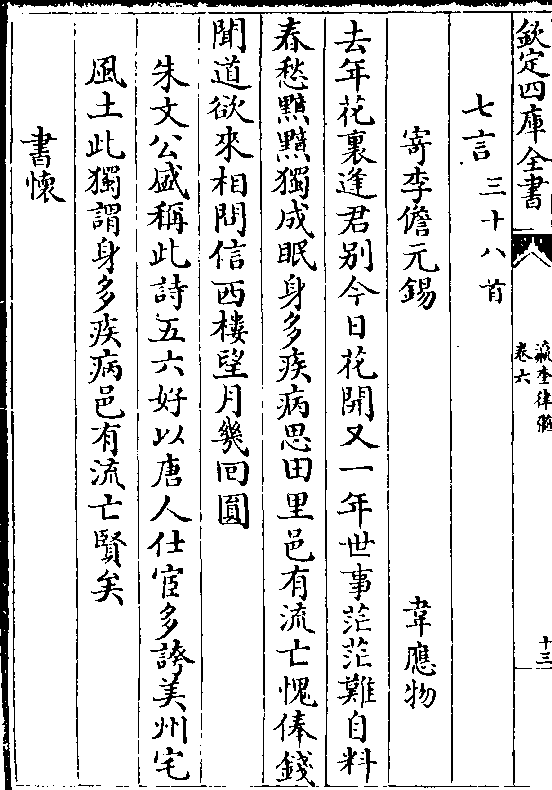 欽定四庫全書
瀛奎律髓
卷六
十三
七言三十八首
寄李儋元錫 韋應物
去年花裏逢君别今日花開又一年世事茫茫難自料
春愁黙黙獨成眠身多疾病思田里邑有流亡愧俸錢
聞道欲來相問信西樓望月幾回圓
朱文公盛稱此詩五六好以唐人仕宦多誇美州宅
風土此獨謂身多疾病邑有流亡賢矣
書懷